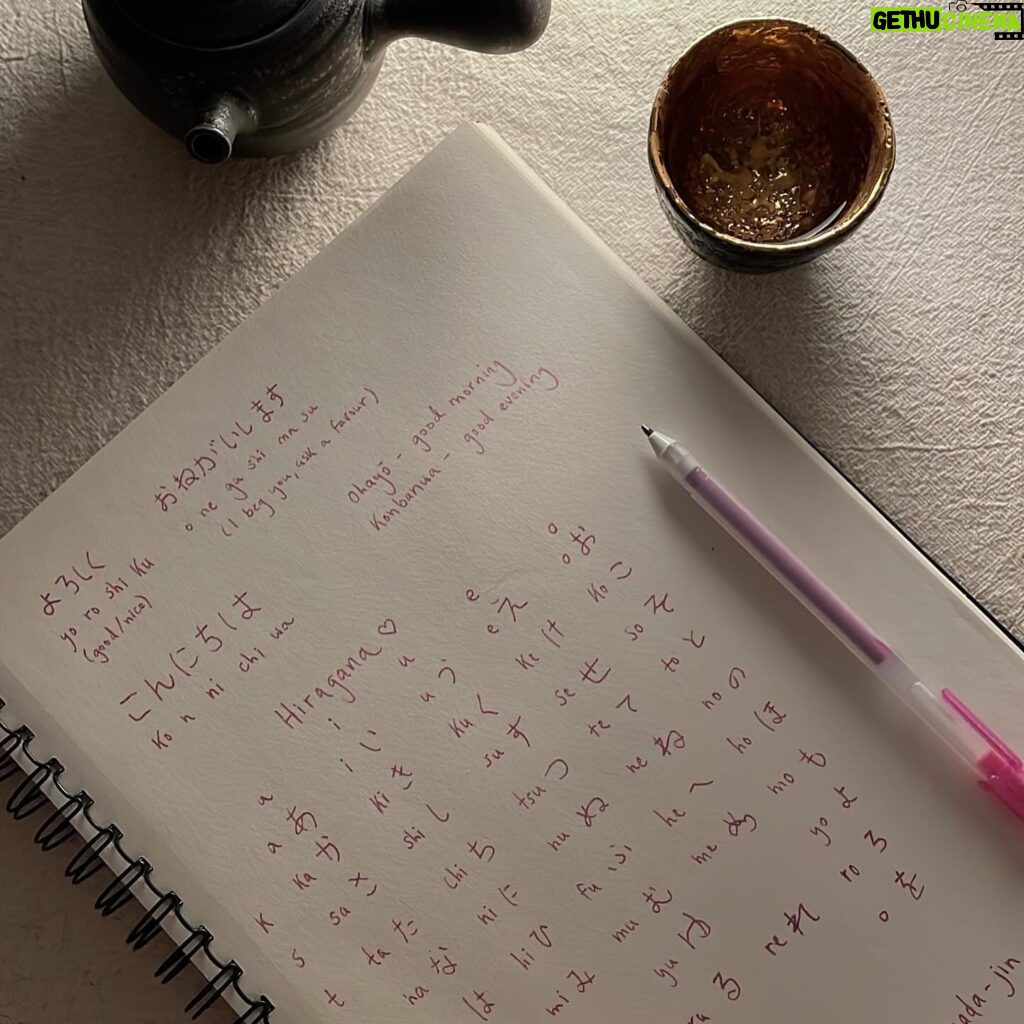 GETHUCINEMA
おねがいします
o ne ga i shi ma su
(I beg you, ask a favour)
Ohayō - good morning
Konbanwa - good evening
よろしく
yo ro shi ku
(good/nice)
こんにちは
ko n ni chi wa
Hiragana ♡
a i u e o
a あ i い u う e え o お
k ka か ki き ku く ke け ko こ
s sa さ shi し su す se せ so そ
t ta た chi ち tsu つ te て to と
na な ni に nu ぬ ne ね no の
は hi ひ fu ふ he へ ho ほ
mi み mu む me め mo も
yu ゆ yo よ
ra ら re れ ro ろ
o を
ada-jin